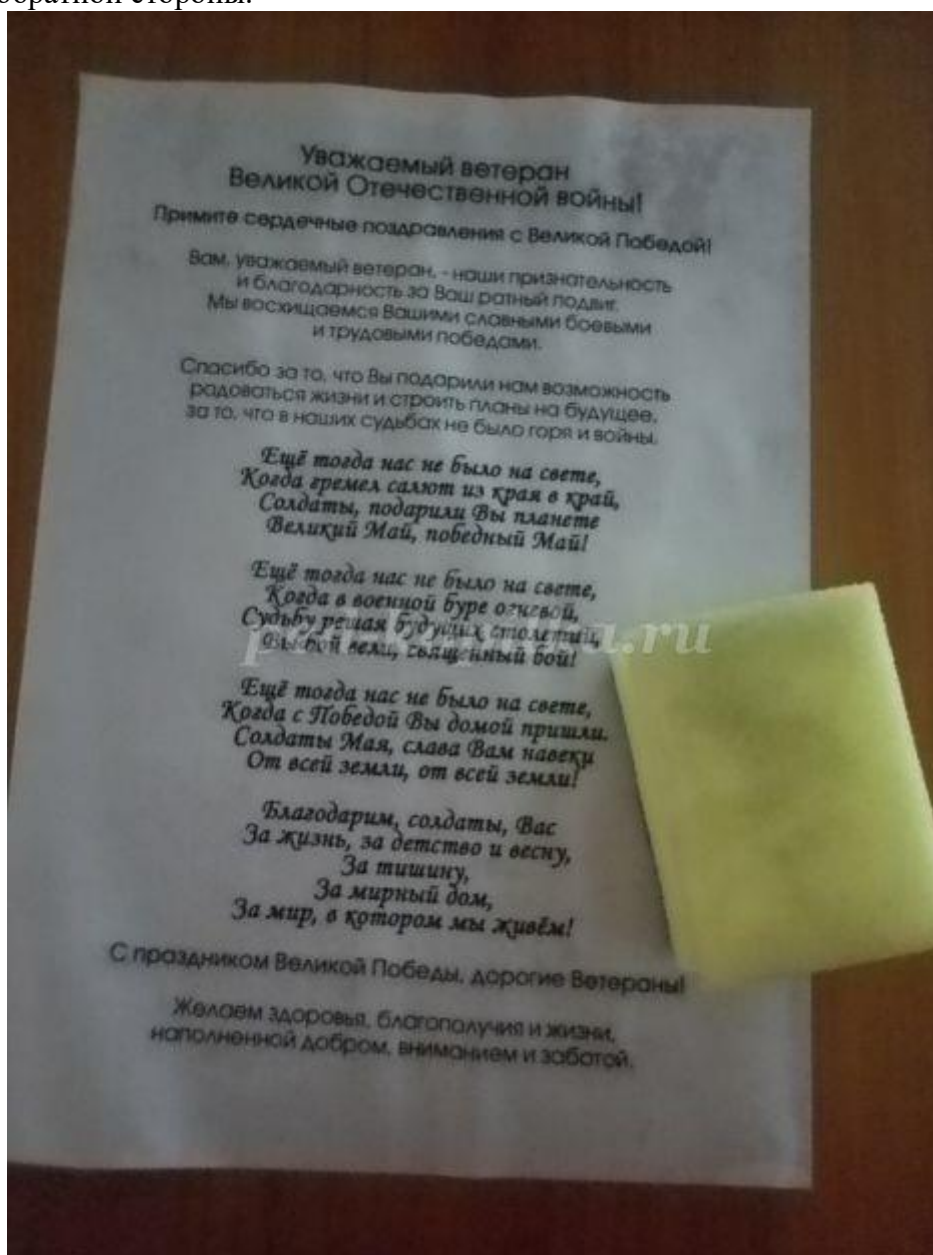 обратной стороны.
Уважаемый ветеран
Великой Отечественной войны!
Примите сердечные поздравления с Великой Победой!
Вам, уважаемый ветеран, - наши признательность
и благодарность за Ваш ратный подвиг.
Мы восхищаемся Вашими славными боевыми
и трудовыми победами.
Спасибо за то, что Вы подарили нам возможность
радоваться жизни и строить планы на будущее,
за то, что в наших судьбах не было горя и войны.
Ещё тогда нас не было на свете,
Когда гремел салют из края в край,
Солдаты, подарили Вы планете
Великий Май, победный Май!
Ещё тогда нас не было на свете,
Когда в военной буре огневой,
Судьбу решая будущих столетий,
Вы бой вели, священный бой!
Ещё тогда нас не было на свете,
Когда с Победой Вы домой пришли.
Солдаты Мая, слава Вам навеки
От всей земли, от всей земли!
Благодарим, солдаты, Вас
За жизнь, за детство и весну,
За тишину,
За мирный дом,
За мир, в котором мы живём!
С праздником Великой Победы, дорогие Ветераны!
Желаем здоровья, благополучия и жизни,
наполненной добром, вниманием и заботой.